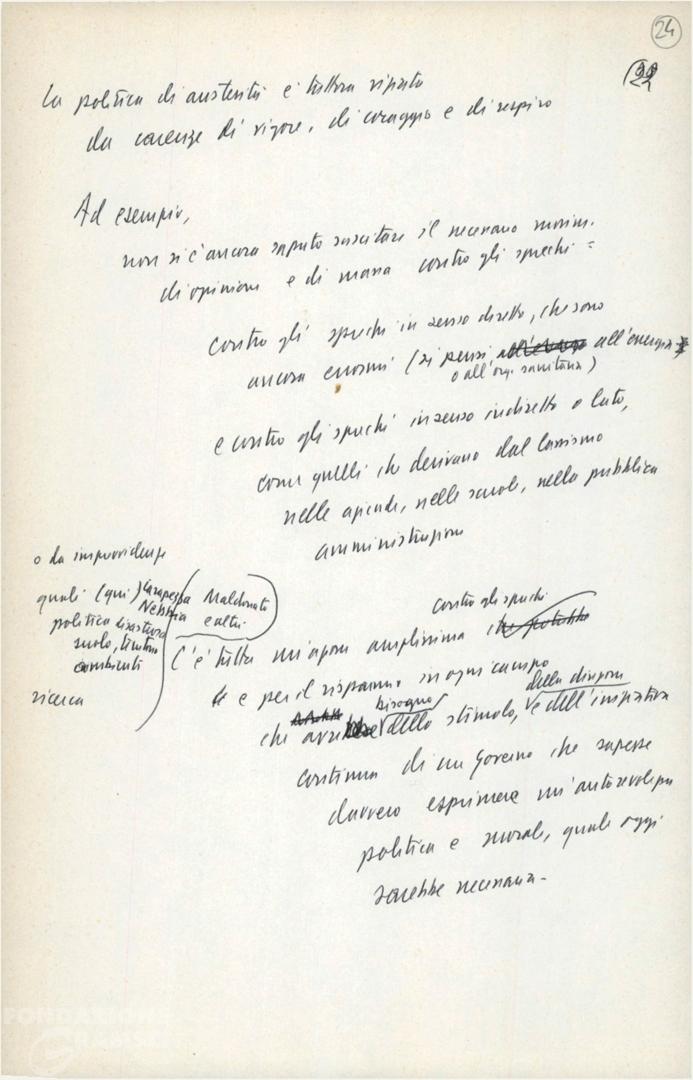 24
22
La politica di austerità è tuttora viziata
da carenze di vigore, di coraggio e di respiro
Ad esempio,
non si è ancora saputo suscitare il necessario movim.
di opinione e di massa contro gli sprechi =
contro gli sprechi in senso diretto, che sono
ancora enormi (si pensi all'energia
o all'org. sanitaria)
e contro gli sprechi in senso indiretto o lato,
come quelli che derivano dal lassismo
nelle aziende, nelle scuole, nella pubblica
amministrazione
o da imprevidenze
quali (qui)
politica dissestata
suolo, territorio
ambienti
ricerca
Nebbia
Maldonado
e altri
contro gli sprechi
C'è tutta un'azione amplissima che potrebbe
e per il risparmio in ogni campo
bisogno
della direzione
che avrebbe dello stimolo, e dell'iniziativa
continua di un Governo che sapesse
davvero esprimere un'autorevolezza
politica e morale, quale oggi
sarebbe necessaria -
FONDAZIONE
GRAMSCI